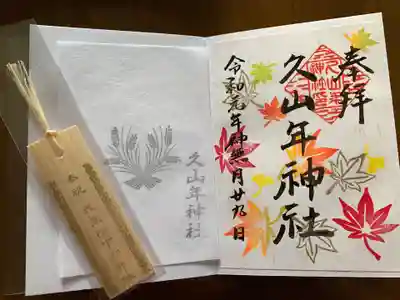 奉拝
久山年神社
令和元年神無月廿九日
久山年神社
奉祝